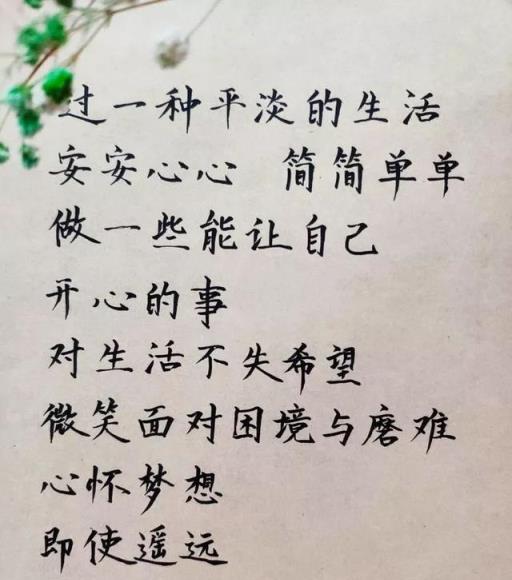 过一种平淡的生活
安安心心 简简单单
做一些能让自己
开心的事
对生活不失希望
微笑面对困境与磨难
心怀梦想
即使遥远